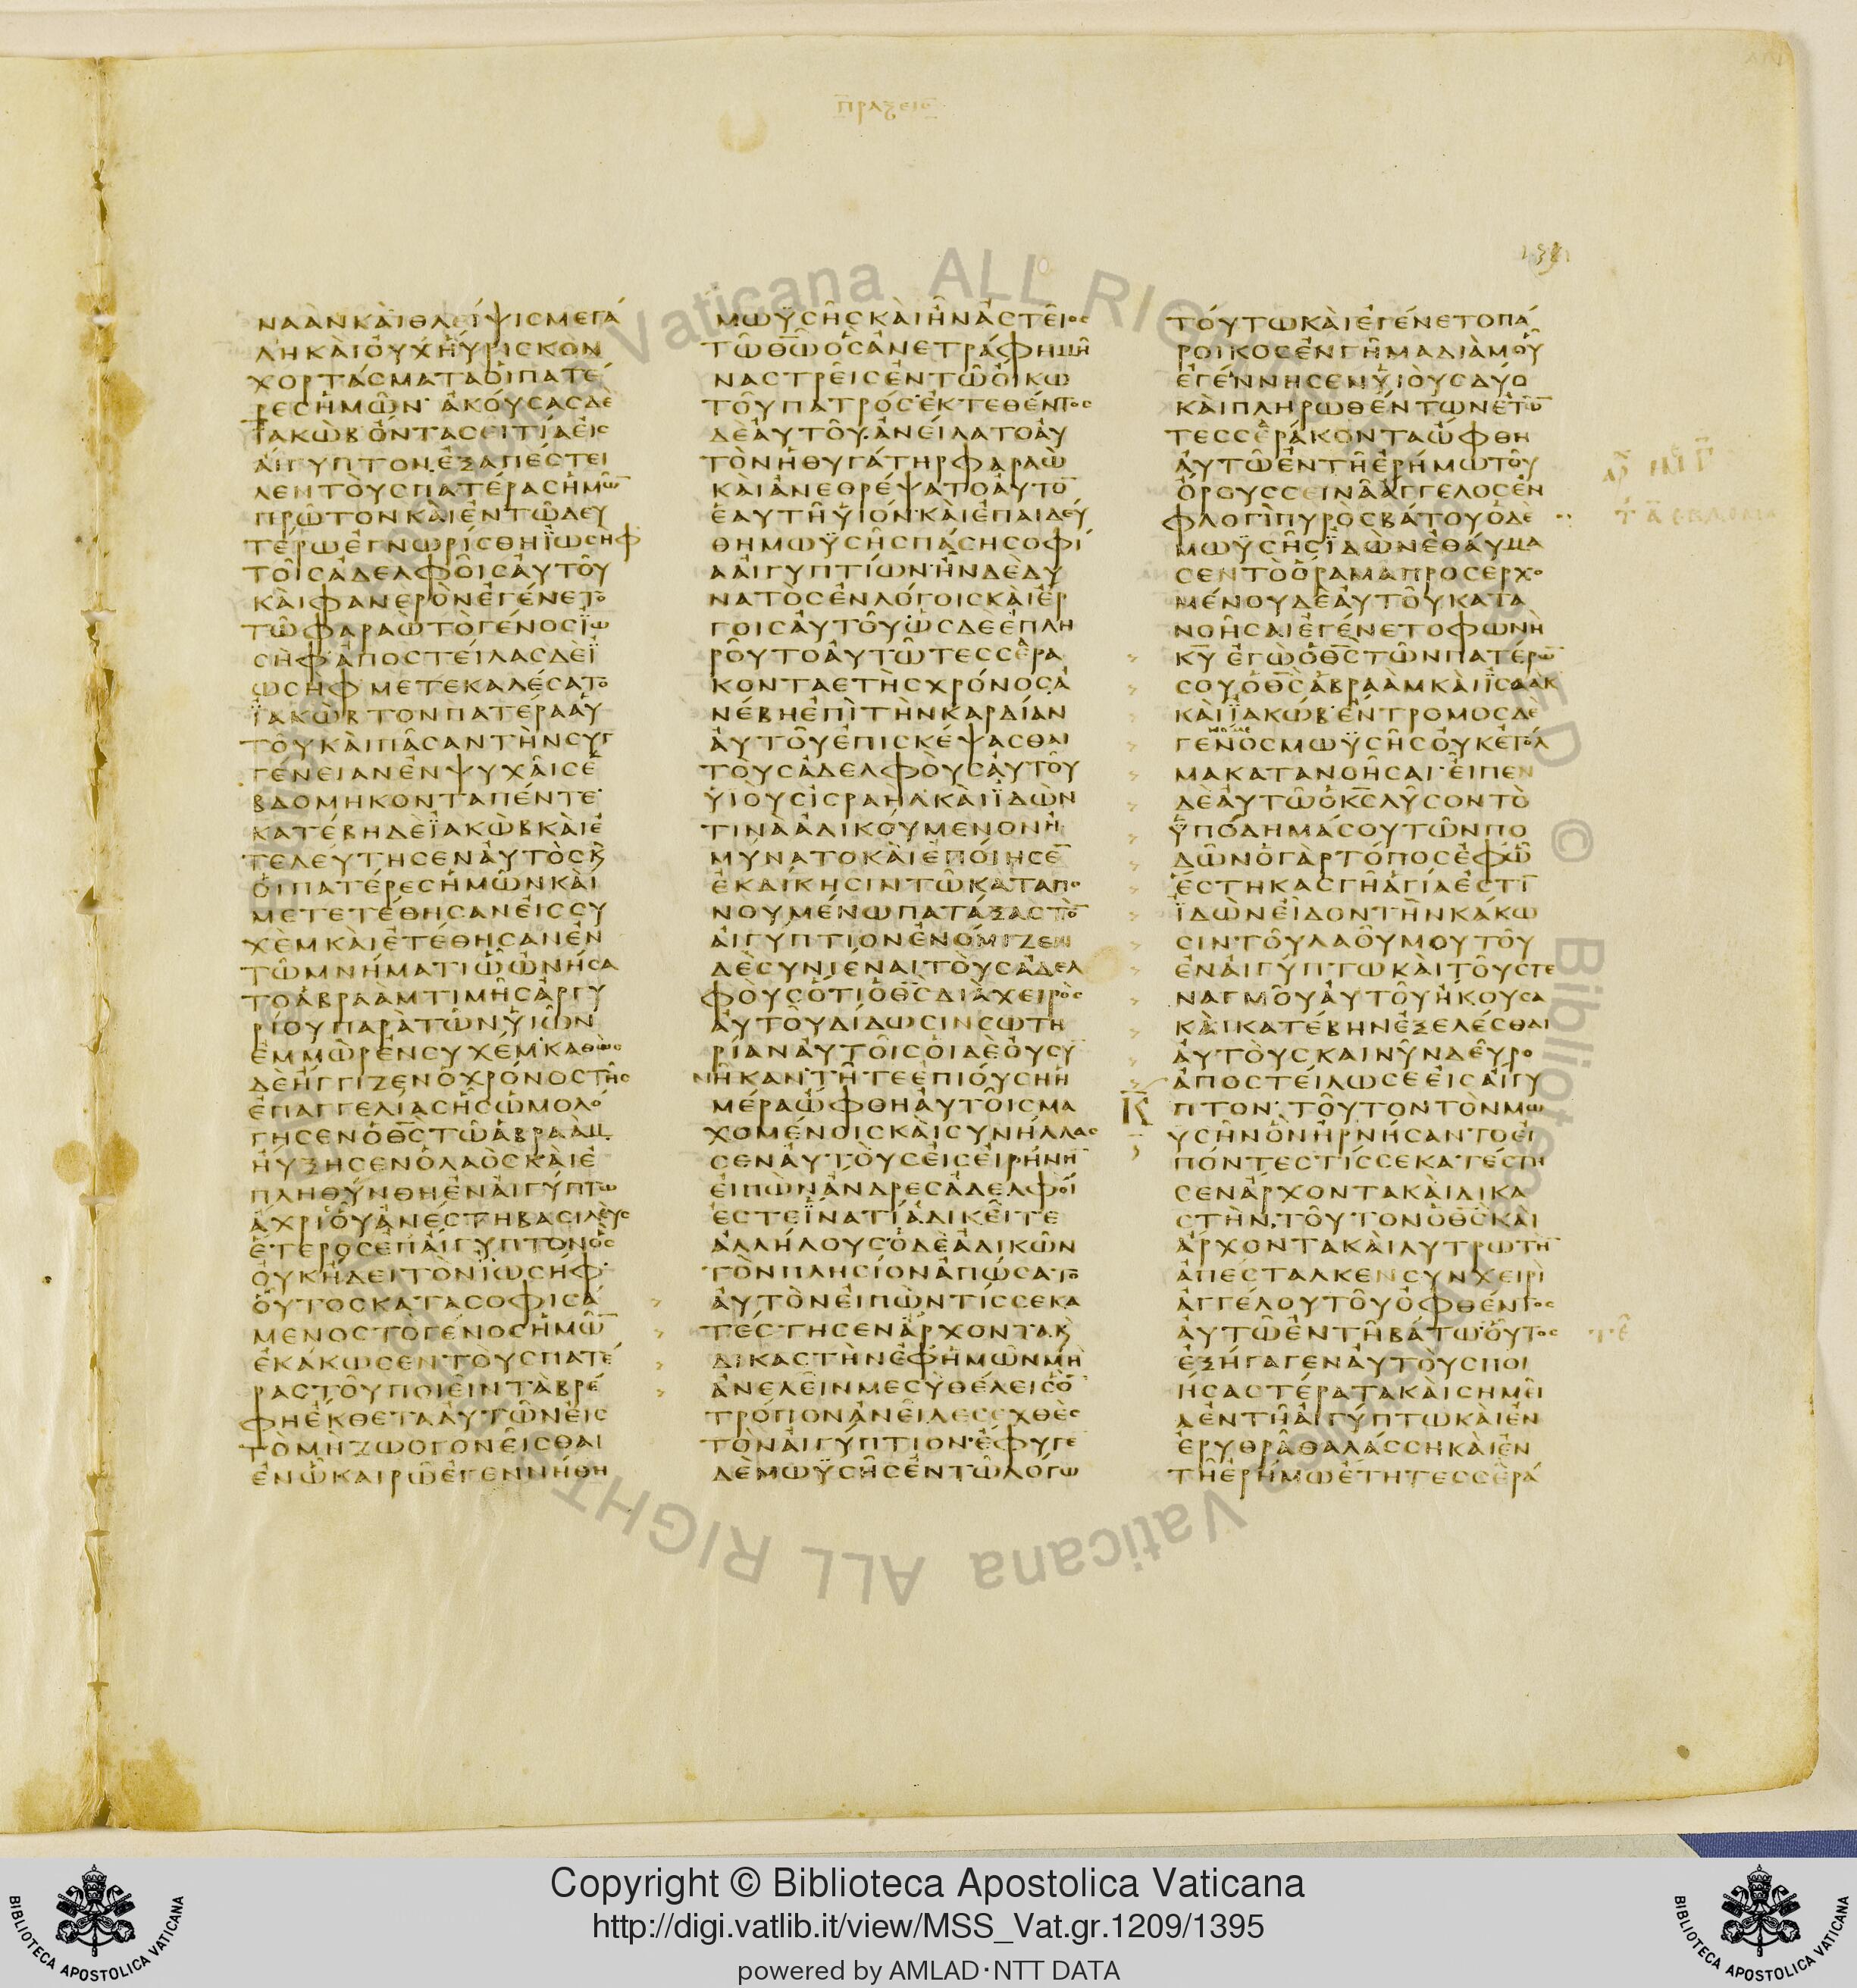 πραξεις
ΝΑΑΝΚΑΙΘΛΕΙΨΙΣΜΕΓΑ
ΛΗΚΑΙΟΥΧΗΥΡΙΣΚΟΝ
ΧΟΡΤΑΣΜΑΤΑΟΙΠΑΤΕ
ΡΕΣΗΜΩΝ·ΑΚΟΥΣΑΣΔΕ
ΪΑΚΩΒΟΝΤΑΣΕΙΤΙΑΕΙΣ
ΑΙΓΥΠΤΟΝΕΞΑΠΕΣΤΕΙ
ΛΕΝΤΟΥΣΠΑΤΕΡΑΣΗΜΩ̅
ΠΡΩΤΟΝΚΑΙΕΝΤΩΔΕΥ
ΤΕΡΩΕΓΝΩΡΙΣΘΗΪΩΣΗΦ
ΤΟΙΣΑΔΕΛΦΟΙΣΑΥΤΟΥ
ΚΑΙΦΑΝΕΡΟΝΕΓΕΝΕΤΟ
ΤΩΦΑΡΑΩΤΟΓΕΝΟΣΪΩ
ΣΗΦ·ΑΠΟΣΤΕΙΛΑΣΔΕΪ
ΩΣΗΦΜΕΤΕΚΑΛΕΣΑΤΟ
ΪΑΚΩΒΤΟΝΠΑΤΕΡΑΑΥ
ΤΟΥΚΑΙΠΑΣΑΝΤΗΝΣΥΓ
ΓΕΝΕΙΑΝΕΝΨΥΧΑΙΣΕ
ΒΔΟΜΗΚΟΝΤΑΠΕΝΤΕ·
ΚΑΤΕΒΗΔΕΪΑΚΩΒΚΑΙΕ
ΤΕΛΕΥΤΗΣΕΝΑΥΤΟΣΚ
ΟΙΠΑΤΕΡΕΣΗΜΩΝΚΑΙ
ΜΕΤΕΤΕΘΗΣΑΝΕΙΣΣΥ
ΧΕΜΚΑΙΕΤΕΘΗΣΑΝΕΝ
ΤΩΜΝΗΜΑΤΙΩΩΝΗΣΑ
ΤΟΑΒΡΑΑΜΤΙΜΗΣΑΡΓΥ
ΡΙΟΥΠΑΡΑΤΩΝΫΙΩΝ
ΕΜΜΩΡΕΝΣΥΧΕΜ·ΚΑΘΩΣ
ΔΕΗΓΓΙΖΕΝΟΧΡΟΝΟΣΤΗΣ
ΕΠΑΓΓΕΛΙΑΣΗΣΩΜΟΛΟ
ΓΗΣΕΝΟΘ̅Σ̅ΤΩΑΒΡΑΑΜ
ΗΥΞΗΣΕΝΟΛΑΟΣΚΑΙΕ
ΠΛΗΘΥΝΘΗΕΝΑΙΓΥΠΤΩ
ΑΧΡΙΟΥΑΝΕΣΤΗΒΑΣΙΛΕΥΣ
ΕΤΕΡΟΣΕΠΑΙΓΥΠΤΟΝΟΣ
ΟΥΚΗΔΕΙΤΟΝΪΩΣΗΦ·
ΟΥΤΟΣΚΑΤΑΣΟΦΙΣΑ
ΜΕΝΟΣΤΟΓΕΝΟΣΗΜΩ̅
ΕΚΑΚΩΣΕΝΤΟΥΣΠΑΤΕ
ΡΑΣΤΟΥΠΟΙΕΙΝΤΑΒΡΕ
ΦΗΕΚΘΕΤΑΑΥΤΩΝΕΙΣ
ΤΟΜΗΖΩΟΓΟΝΕΙΣΘΑΙ
ΕΝΩΚΑΙΡΩΕΓΕΝΝΗΘΗ
ΜΩΫΣΗΣΚΑΙΗΝΑΣΤΕΙΟΣ
ΤΩΘ̅Ω̅ΟΣΑΝΕΤΡΑΦΗΜΗ
ΝΑΣΤΡΕΙΣΕΝΤΩΟΙΚΩ
ΤΟΥΠΑΤΡΟΣ·ΕΚΤΕΘΕΝΤΟΣ
ΔΕΑΥΤΟΥ·ΑΝΕΙΛΑΤΟΑΥ
ΤΟΝΗΘΥΓΑΤΗΡΦΑΡΑΩ
ΚΑΙΑΝΕΘΡΕΨΑΤΟΑΥΤΟ̅
ΕΑΥΤΗΫΙΟΝ·ΚΑΙΕΠΑΙΔΕΥ
ΘΗΜΩΫΣΗΣΠΑΣΗΣΟΦΙ
ΑΑΙΓΥΠΤΙΩΝ·ΗΝΔΕΔΥ
ΝΑΤΟΣΕΝΛΟΓΟΙΣΚΑΙΕΡ
ΓΟΙΣΑΥΤΟΥΩΣΔΕΕΠΛΗ
ΡΟΥΤΟΑΥΤΩΤΕΣΣΕΡΑ
ΚΟΝΤΑΕΤΗΣΧΡΟΝΟΣΑ
ΝΕΒΗΕΠΙΤΗΝΚΑΡΔΙΑΝ
ΑΥΤΟΥΕΠΙΣΚΕΨΑΣΘΑΙ
ΤΟΥΣΑΔΕΛΦΟΥΣΑΥΤΟΥ
ΫΙΟΥΣΙΣΡΑΗΛΚΑΙΪΔΩΝ
ΤΙΝΑΑΔΙΚΟΥΜΕΝΟΝΗ
ΜΥΝΑΤΟΚΑΙΕΠΟΙΗΣΕ̅
ΕΚΔΙΚΗΣΙΝΤΩΚΑΤΑΠΟ
ΝΟΥΜΕΝΩΠΑΤΑΞΑΣΤΟ̅
ΑΙΓΥΠΤΙΟΝΕΝΟΜΙΖΕΝ
ΔΕΣΥΝΙΕΝΑΙΤΟΥΣΑΔΕΛ
ΦΟΥΣΟΤΙΟΘ̅Σ̅ΔΙΑΧΕΙΡΟΣ
ΑΥΤΟΥΔΙΔΩΣΙΝΣΩΤΗ
ΡΙΑΝΑΥΤΟΙΣΟΙΔΕΟΥΣΥ
ΝΗΚΑΝ·ΤΗΤΕΕΠΙΟΥΣΗΗ
ΜΕΡΑΩΦΘΗΑΥΤΟΙΣΜΑ
ΧΟΜΕΝΟΙΣΚΑΙΣΥΝΗΛΛΑΣ
ΣΕΝΑΥΤΟΥΣΕΙΣΕΙΡΗΝΗ̅
ΕΙΠΩΝΑΝΔΡΕΣΑΔΕΛΦΟΙ
ΕΣΤΕΪΝΑΤΙΑΔΙΚΕΙΤΕ
ΑΛΛΗΛΟΥΣ·ΟΔΕΑΔΙΚΩΝ
ΤΟΝΠΛΗΣΙΟΝΑΠΩΣΑΤΟ
ΑΥΤΟΝΕΙΠΩΝΤΙΣΣΕΚΑ
ΤΕΣΤΗΣΕΝΑΡΧΟΝΤΑΚ
ΔΙΚΑΣΤΗΝΕΦΗΜΩΝΜΗ
ΑΝΕΛΕΙΝΜΕΣΥΘΕΛΕΙΣΟ̅
ΤΡΟΠΟΝΑΝΕΙΛΕΣΕΧΘΕΣ
ΤΟΝΑΙΓΥΠΤΙΟΝ·ΕΦΥΓΕ
ΔΕΜΩΫΣΗΣΕΝΤΩΛΟΓΩ
ΤΟΥΤΩΚΑΙΕΓΕΝΕΤΟΠΑ
ΡΟΙΚΟΣΕΝΓΗΜΑΔΙΑΜΟΥ
ΕΓΕΝΝΗΣΕΝΫΙΟΥΣΔΥΟ
ΚΑΙΠΛΗΡΩΘΕΝΤΩΝΕΤΩ̅
ΤΕΣΣΕΡΑΚΟΝΤΑΩΦΘΗ
ΑΥΤΩΕΝΤΗΕΡΗΜΩΤΟΥ
ΟΡΟΥΣΣΕΙΝΑΑΓΓΕΛΟΣΕΝ
ΦΛΟΓΙΠΥΡΟΣΒΑΤΟΥΟΔΕ
ΜΩΫΣΗΣΪΔΩΝΕΘΑΥΜΑ
ΣΕΝΤΟΟΡΑΜΑΠΡΟΣΕΡΧΟ
ΜΕΝΟΥΔΕΑΥΤΟΥΚΑΤΑ
ΝΟΗΣΑΙΕΓΕΝΕΤΟΦΩΝΗ
Κ̅Υ̅ΕΓΩΟΘ̅Σ̅ΤΩΝΠΑΤΕΡΩ̅
ΣΟΥΟΘ̅Σ̅ΑΒΡΑΑΜΚΑΙΪΣΑΑΚ
ΚΑΙΪΑΚΩΒ·ΕΝΤΡΟΜΟΣΔΕ
ΓΕΝΟΣΜΩΫΣΗΣΟΥΚΕΤΟΛ
ΜΑΚΑΤΑΝΟΗΣΑΙ·ΕΙΠΕΝ
ΔΕΑΥΤΩΟΚ̅Σ̅ΛΥΣΟΝΤΟ
ΫΠΟΔΗΜΑΣΟΥΤΩΝΠΟ
ΔΩΝΟΓΑΡΤΟΠΟΣΕΦΩ
ΕΣΤΗΚΑΣΓΗΑΓΙΑΕΣΤΙ̅
ΪΔΩΝΕΙΔΟΝΤΗΝΚΑΚΩ
ΣΙΝΤΟΥΛΑΟΥΜΟΥΤΟΥ
ΕΝΑΙΓΥΠΤΩΚΑΙΤΟΥΣΤΕ
ΝΑΓΜΟΥΑΥΤΟΥΗΚΟΥΣΑ
ΚΑΙΚΑΤΕΒΗΝΕΞΕΛΕΣΘΑΙ
ΑΥΤΟΥΣΚΑΙΝΥΝΔΕΥΡΟ
ΑΠΟΣΤΕΙΛΩΣΕΕΙΣΑΙΓΥ
ΠΤΟΝ·ΤΟΥΤΟΝΤΟΝΜΩ
ΥΣΗΝΟΝΗΡΝΗΣΑΝΤΟΕΙ
ΠΟΝΤΕΣΤΙΣΣΕΚΑΤΕΣΤΗ
ΣΕΝΑΡΧΟΝΤΑΚΑΙΔΙΚΑ
ΣΤΗΝ,ΤΟΥΤΟΝΟΘ̅Σ̅ΚΑΙ
ΑΡΧΟΝΤΑΚΑΙΛΥΤΡΩΤΗ̅
ΑΠΕΣΤΑΛΚΕΝΣΥΝΧΕΙΡΙ
ΑΓΓΕΛΟΥΤΟΥΟΦΘΕΝΤΟΣ
ΑΥΤΩΕΝΤΗΒΑΤΩ·ΟΥΤΟΣ
ΕΞΗΓΑΓΕΝΑΥΤΟΥΣΠΟΙ
ΗΣΑΣΤΕΡΑΤΑΚΑΙΣΗΜΕΙ
ΑΕΝΤΗΑΙΓΥΠΤΩΚΑΙΕΝ
ΕΡΥΘΡΑΘΑΛΑΣΣΗΚΑΙΕΝ
ΤΗΕΡΗΜΩΕΤΗΤΕΣΣΕΡΑ
Copyright © Biblioteca Apostolica Vaticana
http://digi.vatlib.it/view/MSS_Vat.gr.1209/1395
powered by AMLAD·NTT DATA
BIBLIOTECA APOSTOLICA VATICANA
BIBLIOTECA APOSTOLICA VATICANA